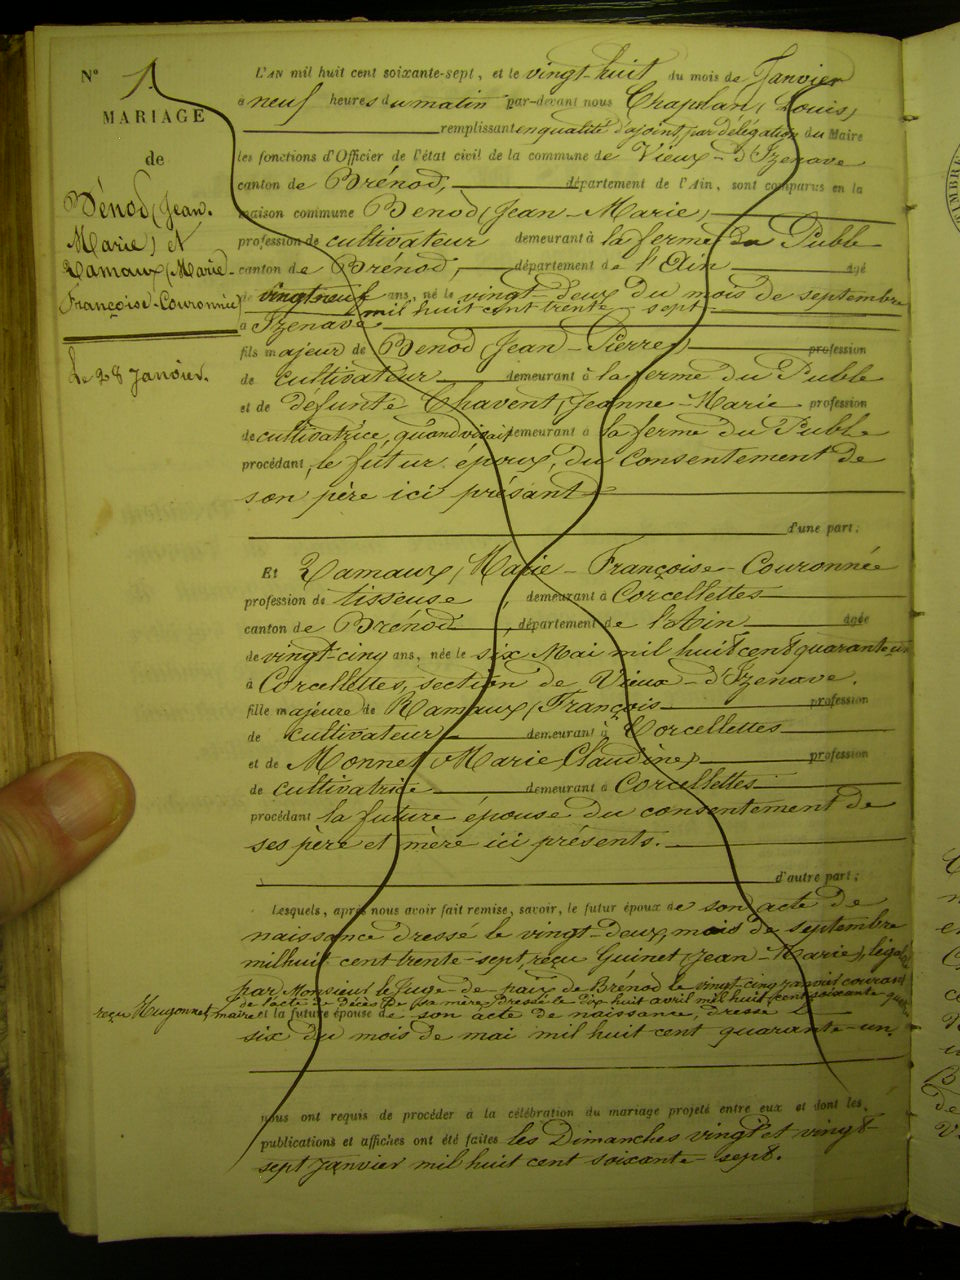 N° 1.
MARIAGE
de
Bénod (Jean-
Marie) et
Ramaux (Marie-
Françoise-Couronnée)
Le 28 Janvier.
L'AN mil huit cent soixante-sept, et le vingt-huit du mois de Janvier
à neuf heures du matin par-devant nous Chapelan (Louis)
remplissant en qualité d'ajoint, par délégation du Maire
les fonctions d'Officier de l'état civil de la commune de Vieux-d'Izenave
canton de Brénod, département de l'Ain, sont comparus en la
maison commune Benod (Jean-Marie)
profession de cultivateur demeurant à la ferme du Publé
canton de Brénod, département de l'Ain âgé
de vingt neuf ans, né le vingt-deux du mois de septembre
mil huit cent trente-sept
à Izenave
fils majeur de Benod (Jean-Pierre) profession
de cultivateur demeurant à la ferme du Publé
et de défunte Chavent (Jeanne-Marie profession
de cultivatrice, quand vivait demeurant à la ferme du Publé
procédant, le futur époux, du consentement de
son père ici présant
d'une part;
Et Ramaux (Marie-Françoise-Couronnée
profession de tisseuse, demeurant à Corcellettes
canton de Brénod, département de l'Ain âgée
de vingt-cinq ans, née le six Mai mil huit cent quarante-un
à Corcellettes, section de Vieux-d'Izenave.
fille majeure de Ramaux (François profession
de cultivateur demeurant à Corcellettes
et de Monnet (Marie Claudine) profession
de cultivatrice demeurant à Corcellettes
procédant la future épouse du consentement de
ses père et mère ici présents.
d'autre part;
Lesquels, après nous avoir fait remise, savoir, le futur époux de son acte de
naissance dressé le vingt-deux, mois de septembre
mil huit cent trente-sept reçu Guinet (Jean-Marie), légalisé
par Monsieur le Juge-de-paix de Brénod le vingt-cinq janvier courant
de l'acte de décès de sa mère, dressé le dix huit avril mil huit cent soixante
reçu Hugonnet, maire et la future épouse de son acte de naissance, dressé le
six du mois de mai mil huit cent quarante-un,
nous ont requis de procéder à la célébration du mariage projeté entre eux et dont les
publications et affiches ont été faites les Dimanches vingt et vingt-
sept Janvier mil huit cent soixante-sept.